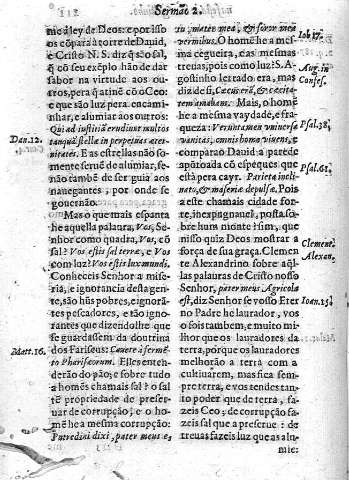 Sermão 2.
me á ley de Deos: e por isso
os cõpara à torre de David,
e Cristo N. S. diz q̃ só o sal,
q̃ cõ seu exẽplo hão de dar
sabor na virtude aos outros,
pera q̃ atinẽ cõ o Ceo:
e que são luz pera encaminhar,
e alumiar aos outros:
Dan. 12.
Qui ad iustitiã erudiunt multos
tanquã stella in perpetuas æternitates.
E as estrellas não somente
seruẽ de alumiar, senão
também de ser guia aos
nauegantes, por onde se
gouernão.
Mas o que mais espanta
he aquella palaura, Vos, Senhor
como quadra, Vos, cõ
sal? Vos estis sal terræ, e Vos
com luz? Vos estis lux mundi.
Conheceis Senhor a miseria,
e ignorancia desta gente,
são hũs pobres, e ignorãtes
pescadores, e tão ignorantes
que dizendolhe que
se guardassem da doutrina
Matt. 16.
dos Fariseus: Cauete à fermẽto
Pharisæorum. Elles entenderão
do pão; e sobre tudo
a homẽs chamais sal? o sal
tẽ propriedade de preseruar
de corrupção; e o homẽ
he a mesma corrupção:
Putredini dixi, pater meus es,
Iob 17.
mater mea, & soror mea
vermibus. O homẽ he a mesma
cegueira, e cas mesmas
treuas, e vos sois luz? S. Agostinho
Aug. in
Confes.
letrado era, mas
diz de si, Cæcus erã, & cæcitatem
amabam. Mais, o homẽ
he a mesma vaydade, e fraqueza:
Psal. 38,
Veruntamen vniuersa
vanitas, omnis homo viuens, e
comparao David a parede
apõtoada cõ espẽques, que
Psal. 61.
está pera cayr. Parieti inclinato,
& maceriæ depulsæ. Pois
a este chamais cidade forte,
inexpugnauel, posta, sobre
hum monte? sim, que
nisso quiz Deos mostrar a
força de sua graça. Clemente
Clement.
Alexan.
Alexandrino sobre aq̃llas
palauras de Cristo nosso
Senhor, pater meus Agricola
Ioan. 15.
est, diz Senhor se vosso Eterno
Padre he laurador, vos
o sois tambem, e muito milhor
que os lauradores da
terra, porque os lauradores
melhorão a terra com a
cultiuarem, mas fica sempre
terra, e vos tendes tanto
poder que de terra, fazeis
Ceo; de corrupção fazeis
sal que a preserue: de
treuas fazeis luz que as alumie: